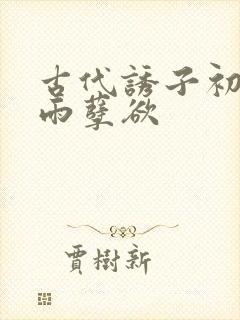 古代誘子初
雨孽欲
賈樹新